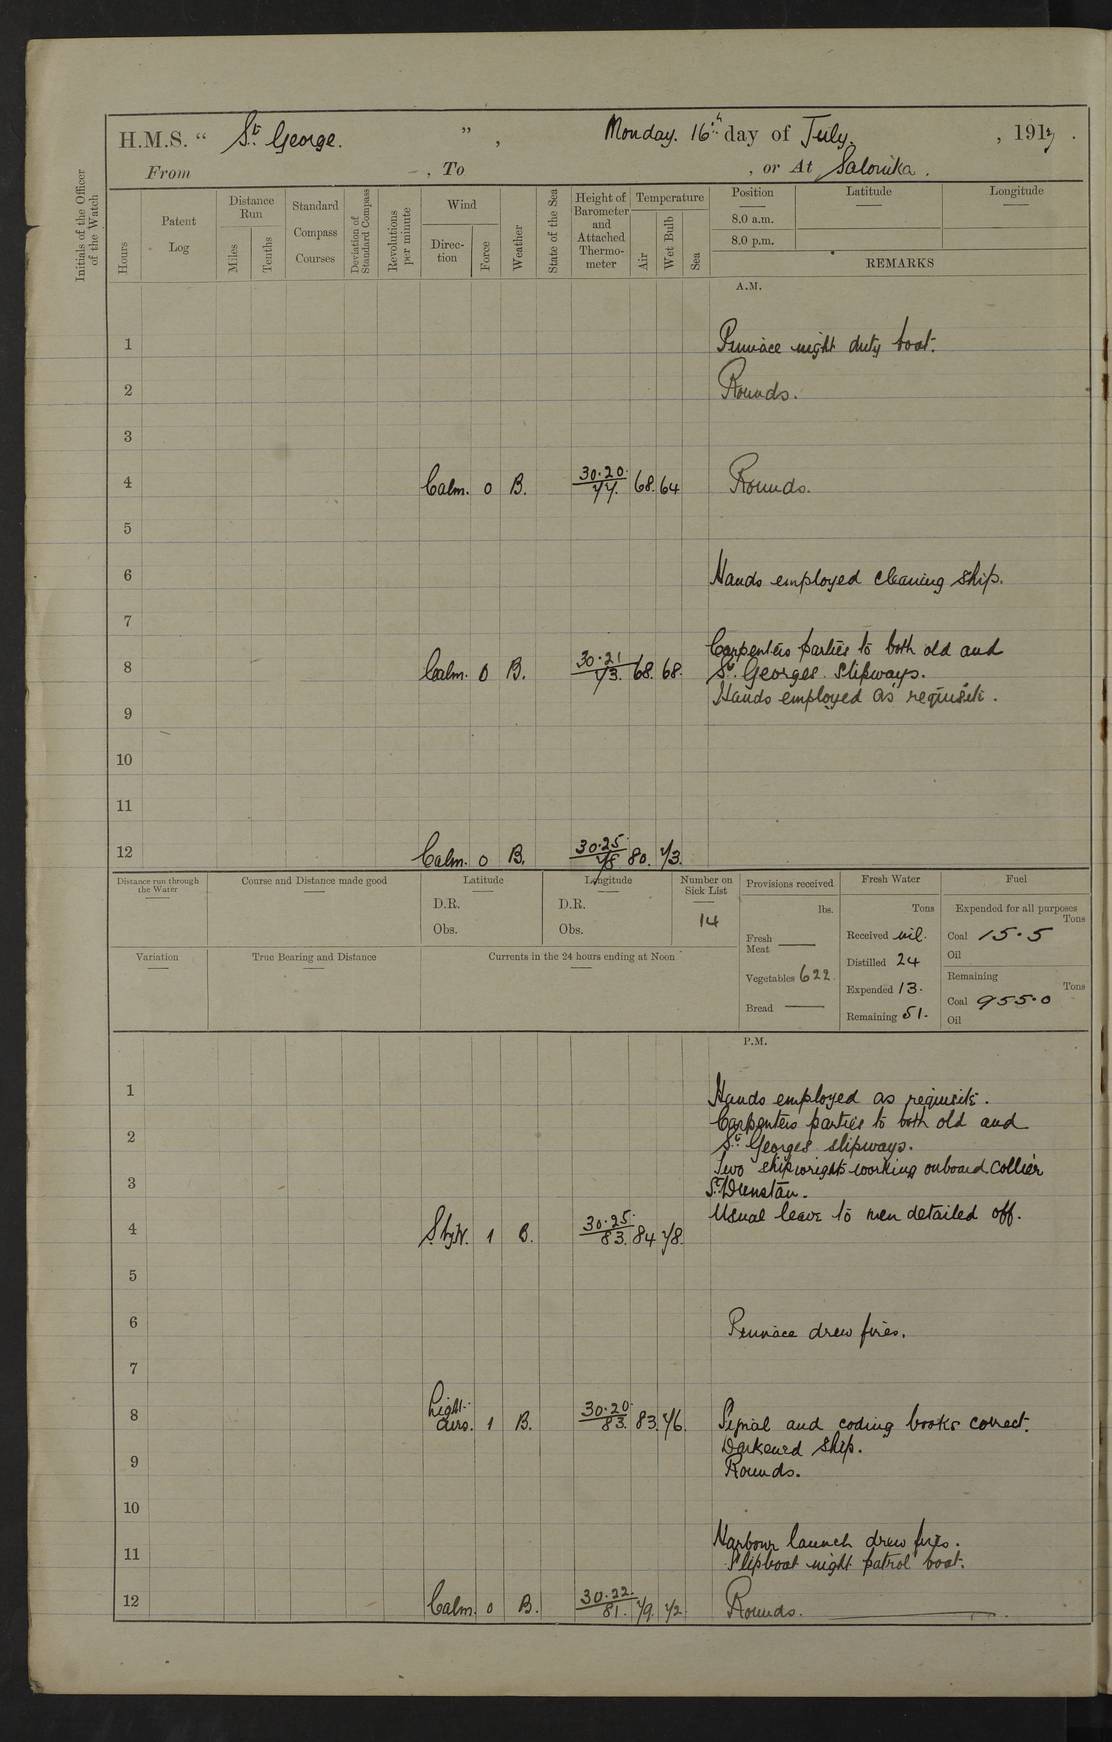 H.M.S. “ St. George. ” , Monday. 16th day of July. , 1917 .
From , To , or At Salonika.
Initials of the Officer of the Watch
Hours
Patent Log
Distance Run
Miles
Tenths
Standard Compass Courses
Deviation of Standard Compass
Revolutions per minute
Wind
Direc-tion
Force
Weather
State of the Sea
Height of Barometer and Attached Thermo-meter
Temperature
Air
Wet Bulb
Sea
Position
Latitude
Longitude
8.0 a.m.
8.0 p.m.
REMARKS
A.M.
1 Pinnace night duty boat.
2 Rounds.
3
4 Calm. 0 B. 30.20. 77. 68. 64 Rounds.
5
6 Hands employed cleaning ship.
7
Carpenters parties to both old and
8 Calm. 0 B. 30.21 73. 68. 68. St. Georges slipways.
Hands employed as requisite.
9
10
11
12 Calm. 0 B. 30.25 78. 80. 73.
Distance run through the Water
Course and Distance made good
Latitude
D.R.
Obs.
Longitude
D.R.
Obs.
Number on Sick List
14
Provisions received
lbs.
Fresh Meat ——
Vegetables 622.
Bread ——
Fresh Water
Tons
Received nil.
Distilled 24
Expended 13.
Remaining 51.
Fuel
Expended for all purposes
Tons
Coal 15.5
Oil
Remaining
Tons
Coal 955.0
Oil
Variation
True Bearing and Distance
Currents in the 24 hours ending at Noon
P.M.
1 Hands employed as requisite.
Carpenters parties to both old and
2 St. Georges slipways.
Two shipwrights working onboard collier
3 St. Dunstan.
Usual leave to men detailed off.
4 SbyW. 1 B. 30.25. 83. 84 78.
5
6 Pinnace drew fires.
7
8 Light airs. 1 B. 30.20. 83. 83. 76. Signal and coding books correct.
Darkened ship.
9 Rounds.
10
Harbour launch drew fires.
11 Slipboat night patrol boat.
12 Calm. 0 B. 30.22. 81. 79. 72 Rounds.